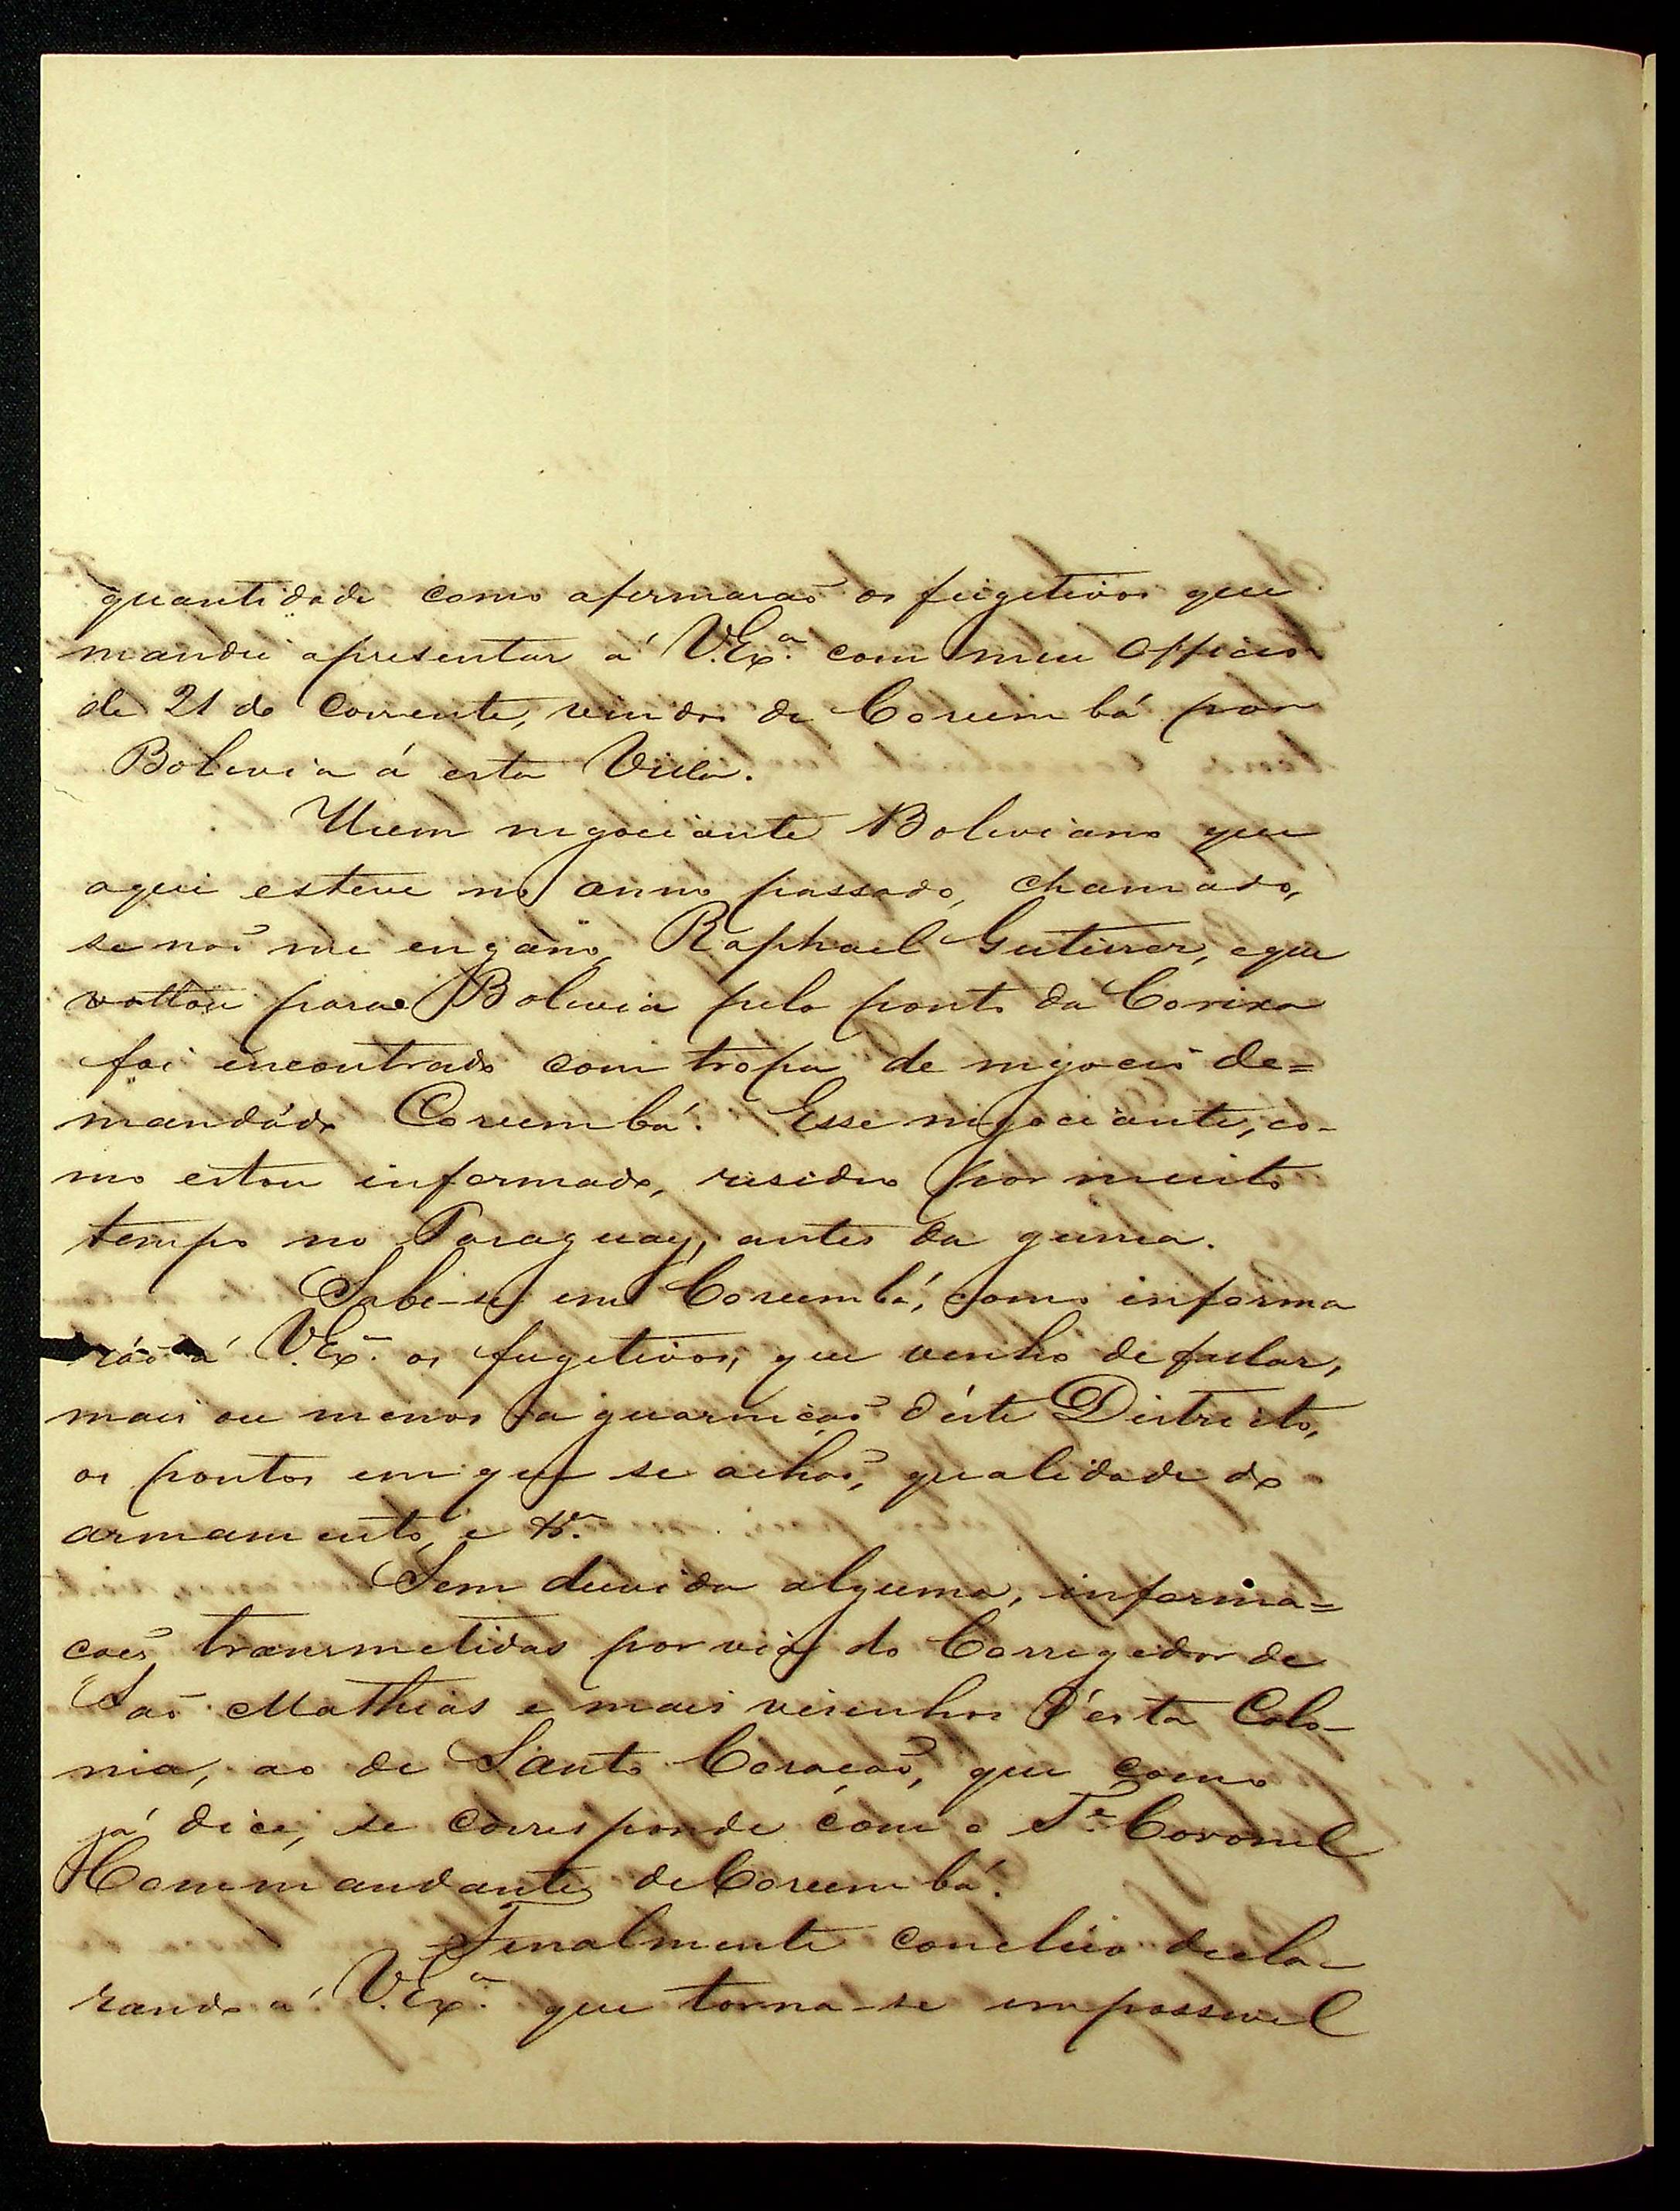 quantidade como afirmaraõ os fugetivos que
mandei apresentar á V. Exª. com meu Officio
de 21 do Corrente, vindos de Corumbá por
Bolivia á esta Villa.
Hum negociante Boliviano que
aqui esteve no anno passado, chamado,
se naõ me engano, Raphael Gutierrez, e que
voltou para Bolivia pelo ponto da Corixa
foi encontrado com tropa de negocio de=
mandádo Corumbá. Esse negociante, co-
mo estou informado, residio por muito
tempo no Paraguay, antes da guerra.
Sabe-se em Corumbá, como informa
ráõ á V. Exª. os fugetivos, que venho de fallar,
mais ou menos a guarniçaõ d'éste Districto,
os pontos em que se achaõ, qualidade do
armamento, e &ª.
Sem duvida alguma, informa=
coẽs transmetidas por via do Corregedor de
Saõ Mathias e mais visinhos d'ésta Colo-
nia, ao de Santo Coraçaõ, que como
já dice, se corresponde com o Tᵉ. Coronel
Commandante de Corumbá.
Finalmente concluio decla-
rando á V. Exª. que torna-se impossivel